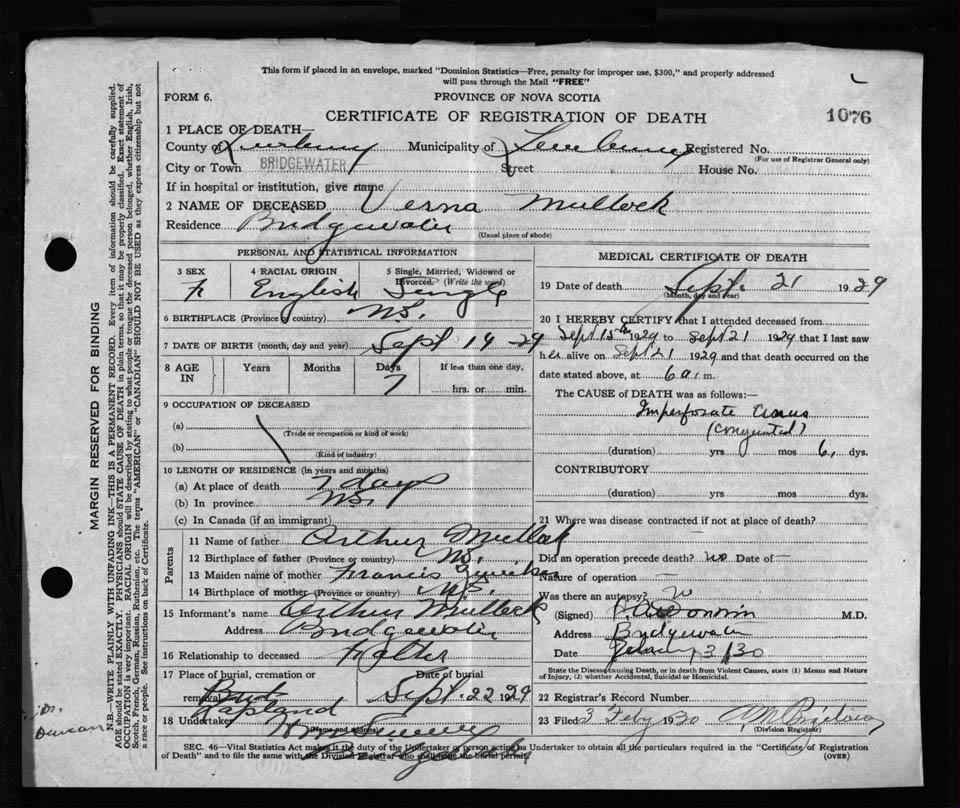 This form if placed in an envelope, marked "Dominion Statistics—Free, penalty for improper use, $300," and properly addressed
will pass through the Mail "FREE"
FORM 6.
PROVINCE OF NOVA SCOTIA
1076
CERTIFICATE OF REGISTRATION OF DEATH
1 PLACE OF DEATH—
County of Lunenburg Municipality of Lunenburg Registered No.
(For use of Registrar General only)
City or Town BRIDGEWATER Street House No.
If in hospital or institution, give name
2 NAME OF DECEASED Verna Mullock
Residence Bridgewater
(Usual place of abode)
PERSONAL AND STATISTICAL INFORMATION
3 SEX
F
4 RACIAL ORIGIN
English
5 Single, Married, Widowed or
Divorced. (Write the word)
Single
6 BIRTHPLACE (Province or country) N.S.
7 DATE OF BIRTH (month, day and year) Sept 14 - 29
8 AGE
IN
Years
Months
Days
7
If less than one day,
hrs. or min.
9 OCCUPATION OF DECEASED
(a)
(Trade or occupation or kind of work)
(b)
(Kind of industry)
10 LENGTH OF RESIDENCE (in years and months)
(a) At place of death 7 days
(b) In province N.S.
(c) In Canada (if an immigrant)
Parents
11 Name of father Arthur Mullock
12 Birthplace of father (Province or country) N.S.
13 Maiden name of mother Francis
14 Birthplace of mother (Province or country) N.S.
15 Informant's name Arthur Mullock
Address Bridgewater
16 Relationship to deceased Father
17 Place of burial, cremation or
removal
Lapland
Date of burial
Sept. 22 1929
18 Undertaker
(Name and address)
MEDICAL CERTIFICATE OF DEATH
19 Date of death Sept. 21 1929
(Month, day and year)
20 I HEREBY CERTIFY that I attended deceased from
Sept 15th 1929 to Sept 21 1929 that I last saw
her alive on Sept 21 1929 and that death occurred on
date stated above, at 6 a. m.
The CAUSE OF DEATH was as follows:
Imperforate Anus
(Congenital)
(duration) yrs mos 6 dys.
CONTRIBUTORY
(duration) yrs. mos. dys.
21 Where was disease contracted if not at place of death?
Did an operation precede death? no Date of —
Nature of operation —
Was there an autopsy?
(Signed) M.D.
Address Bridgewater
Date 3/30
State the Disease causing Death, or in death from Violent Causes, state (1) Means and Nature
of Injury, (2) whether Accidental, Suicidal or Homicidal.
22 Registrar's Record Number
23 Filed 3 Feby 1930
(Division Registrar)
SEC. 46—Vital Statistics Act makes it the duty of the Undertaker or person acting as Undertaker to obtain all the particulars required in the "Certificate of Registration
of Death" and to file the same with the Division Registrar who shall issue the burial permit.
(OVER)
MARGIN RESERVED FOR BINDING
N.B.—WRITE PLAINLY WITH UNFADING INK—THIS IS A PERMANENT RECORD. Every item of information should be carefully supplied.
AGE should be stated EXACTLY. PHYSICIANS should STATE CAUSE OF DEATH in plain terms, so that it may be properly classified. Exact statement of
OCCUPATION is very important. RACIAL ORIGIN will be described by stating to what people or tongue the deceased person belonged, whether English, Irish,
Scotch, French, German, Russian, Ruthenian, etc. The terms "AMERICAN" or "CANADIAN" SHOULD NOT BE USED as they express citizenship but not
a race or people. See instructions on back of Certificate.
Dr.
Duncan